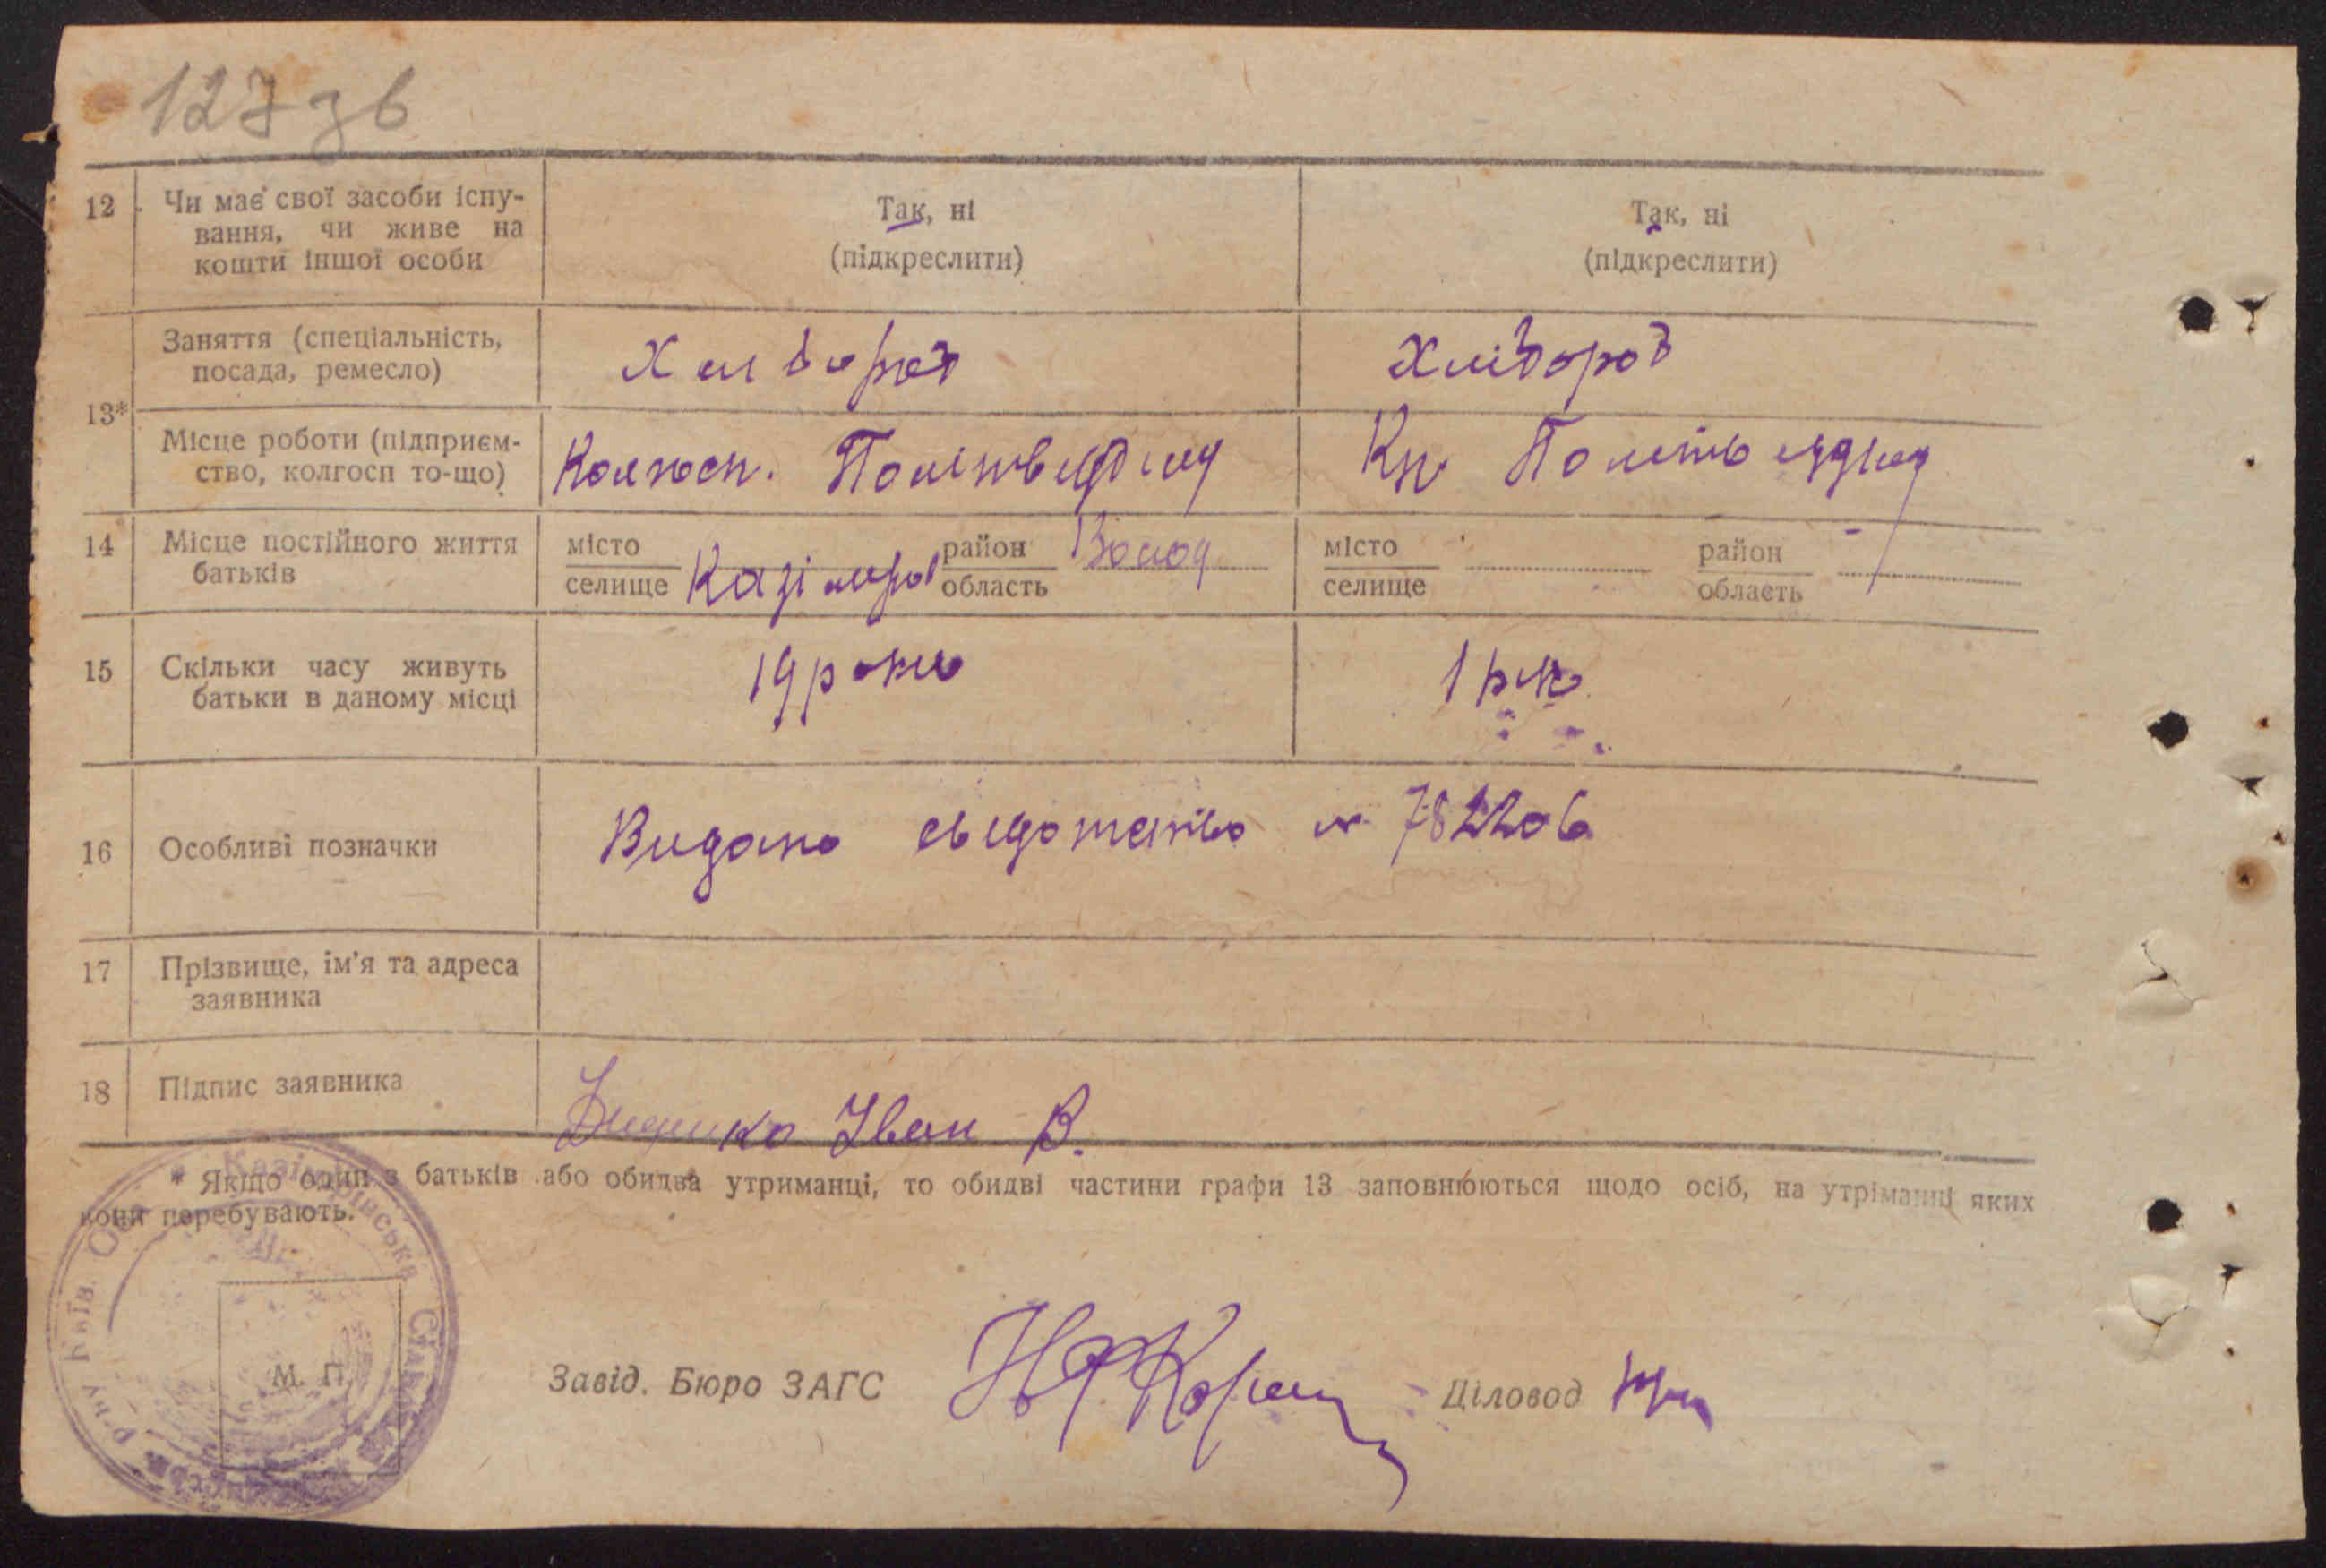 127 зв
12 Чи має свої засоби існу-
вання, чи живе на
кошти іншої особи
Так, ні
(підкреслити)
Так, ні
(підкреслити)
13*
Заняття (спеціальність,
посада, ремесло)
Хлібород
Хлібороб
Місце роботи (підприєм-
ство, колгосп то-що)
Колгосп. Політвідділу
Кп Політвідділу
14 Місце постійного життя
батьків
місто
селище
Казімирів
район
область
Волод
місто
селище
район
область
15 Скільки часу живуть
батьки в даному місці
19 років
1 рік
16 Особливі позначки
Видано свідотство № 782206
17 Прізвище, ім'я та адреса
заявника
18 Підпис заявника
Іван В.
* Якщо один з батьків або обидва утриманці, то обидві частини графи 13 заповнюються щодо осіб, на утріманні яких
вони перебувають.
Казімирівська Сільс
р-ну Київ. Обл
М. П.
Завід. Бюро ЗАГС
Діловод